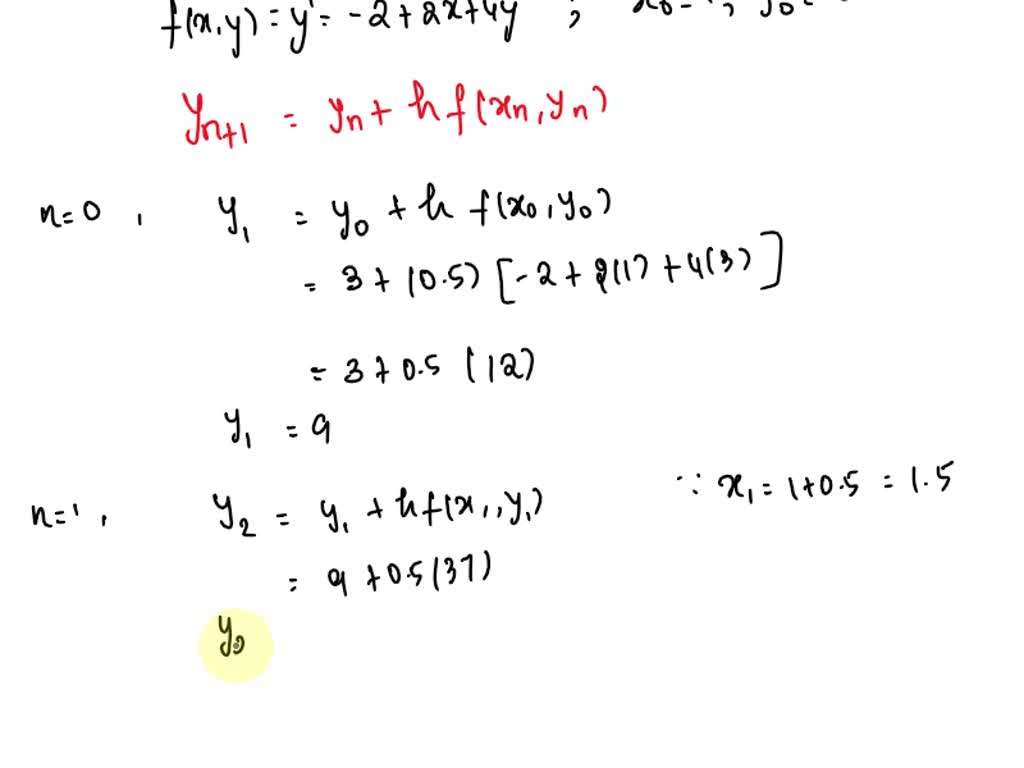 f(x,y) = y' = -2+2x+4y ;
y_{n+1} = y_n + h f(x_n, y_n)
n=0 , y_1 = y_0 + h f(x_0, y_0)
= 3 + (0.5) [-2 + 2(1) + 4(3)]
= 3 + 0.5 (12)
y_1 = 9
n=1 , y_2 = y_1 + h f(x_1, y_1) ∵ x_1 = 1+0.5 = 1.5
= 9 + 0.5 (37)